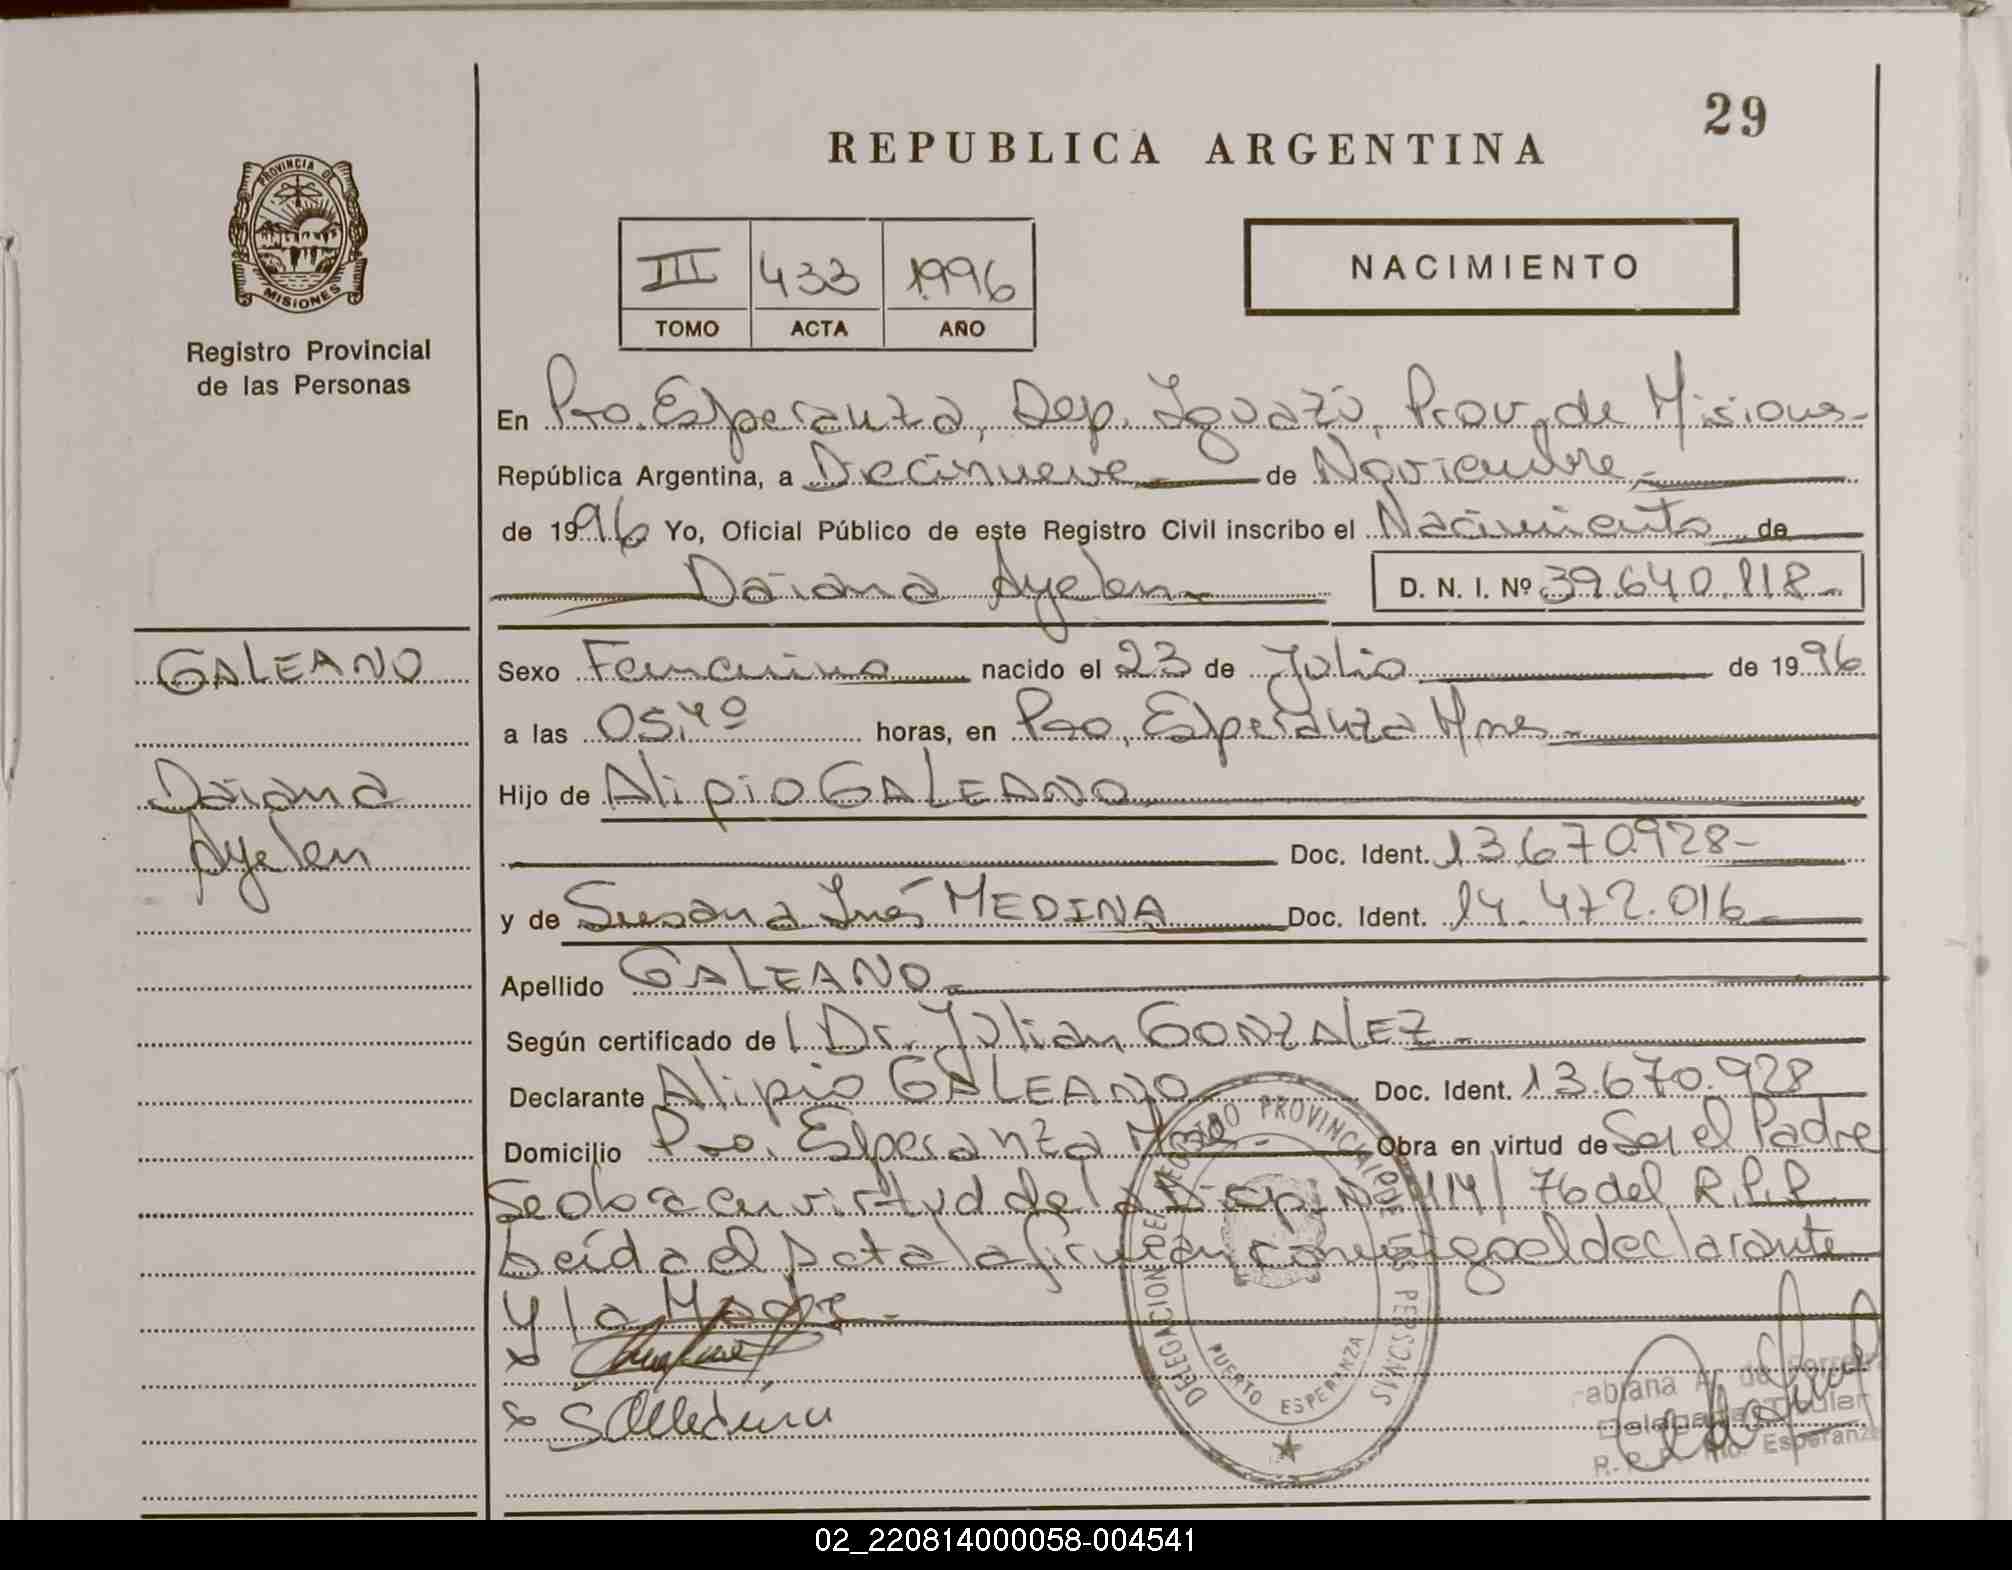 29
REPUBLICA ARGENTINA
PROVINCIA DE
MISIONES
Registro Provincial
de las Personas
III 433 1996
TOMO ACTA AÑO
NACIMIENTO
En Pto. Esperanza, Dep. Iguazú, Prov. de Misiones-
República Argentina, a Diecinueve de Noviembre
de 1996 Yo, Oficial Público de este Registro Civil inscribo el Nacimiento de
Daiana Ayelen D. N. I. Nº 39.640.118-
GALEANO
Daiana
Ayelen
Sexo Femenino nacido el 23 de Julio de 1996
a las 05,40 horas, en Pto, Esperanza Mnes
Hijo de Alipio GALEANO
Doc. Ident. 13.670.928-
y de Susana Inés MEDINA Doc. Ident. 14.472.016
Apellido GALEANO
Según certificado de l Dr. Julian GONZALEZ
Declarante Alipio GALEANO Doc. Ident. 13.670.928
Domicilio Pto. Esperanza Mnes. Obra en virtud de Ser el Padre
Se obra en virtud de la Disp. Nº 114/76 del R.P.P.
Leída el Acta la firman conmigo el declarante
y la Madre
x
x SMedina
DELEGACION DEL REGISTRO PROVINCIAL DE LAS PERSONAS
PUERTO ESPERANZA
Fabiana A. de Ferreira
Delegada Titular
R. P. P. Pto. Esperanza
02_220814000058-004541